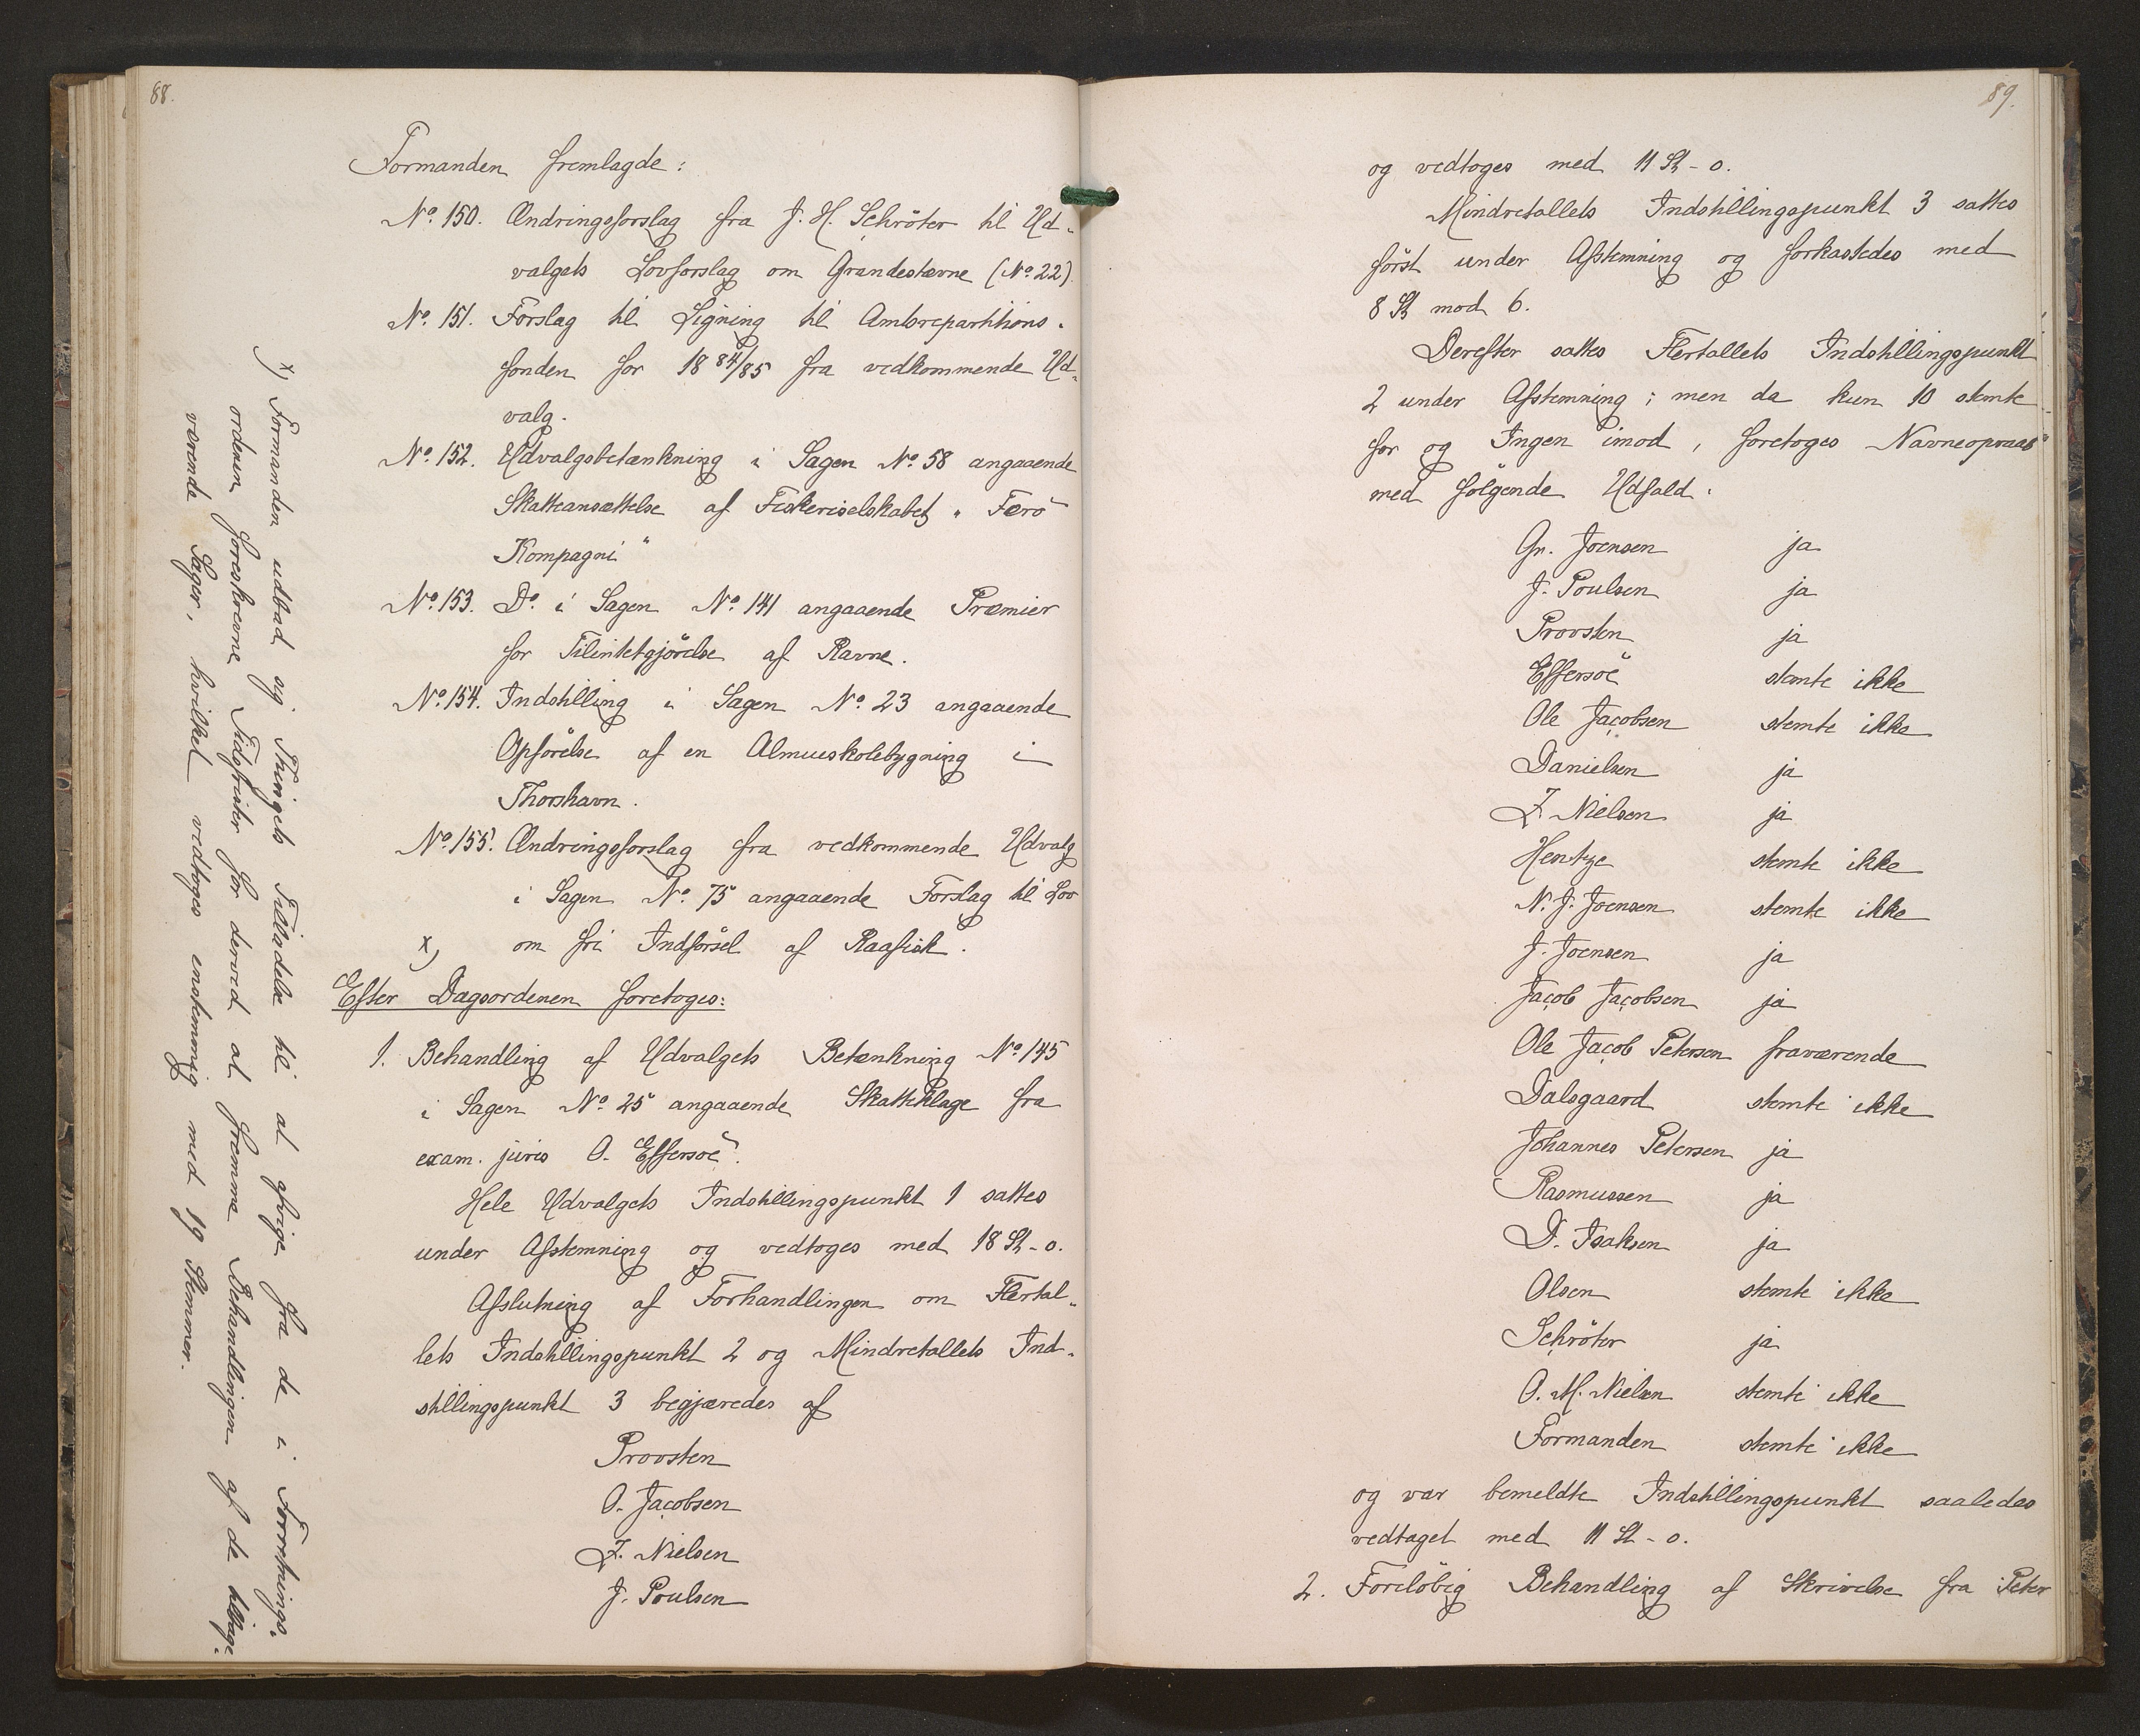 88.
Formanden fremlagde:
No. 150. Ændringsforslag fra J. H. Schröter til Ud-
valgets Lovforslag om Grandestævne (No 22)
No. 151. Forslag til Ligning til Amtsrepartitions-
fonden for 1884/85 fra vedkommende Ud-
valg.
No. 152. Udvalgsbetænkning i Sagen No. 58 angaaende
Skatteansættelse af Fiskeriselskabet „Færö
Kompagni"
No. 153. Do. i Sagen No. 141 angaaende Præmier
for Tilintetgjörelse af Ravne.
No. 154. Indstilling i Sagen No. 23 angaaende
Opförelse af en Almueskolebygning i
Thorshavn.
No. 155. Ændringsforslag fra vedkommende Udvalg
i Sagen No. 75 angaaende Forslag til Lov
x) om fri Indförsel af Raafisk.
Efter Dagsordenen foretoges:
1. Behandling af Udvalgets Betænkning No. 145
i Sagen No. 25 angaaende Skatteklage fra
exam. juris O. Effersöe.
Hele Udvalgets Indstillingspunkt 1 sattes
under Afstemning og vedtoges med 18 St - o.
Afslutning af Forhandlingen om Flertal-
lets Indstillingspunkt 2 og Mindretallets Ind-
stillingspunkt 3 begjæredes af
Provsten
O. Jacobsen
Z. Nielsen
J. Poulsen
x) Formanden udbad sig Thingets Tilladelse til at afvige fra de i Forretnings-
ordenen foreskrevne Tidsfrister for derved at fremme Behandlingen af de tilbage-
værende Sager, hvilket vedtoges enstemmig med 19 Stemmer.
89.
og vedtoges med 11 St - o.
Mindretallets Indstillingspunkt 3 sattes
först under Afstemning og forkastedes med
8 St mod 6.
Derefter sattes Flertallets Indstillingspunkt
2 under Afstemning; men da kun 10 stemte
for og Ingen imod, foretoges Navneopraab
med fölgende Udfald:
Gr. Joensen ja
J. Poulsen ja
Provsten ja
Effersöe stemte ikke
Ole Jacobsen stemte ikke
Danielsen ja
Z. Nielsen ja
Hentze stemte ikke
N. J. Joensen stemte ikke
J. Joensen ja
Jacob Jacobsen ja
Ole Jacob Petersen fraværende
Dalsgaard stemte ikke
Johannes Petersen ja
Rasmussen ja
D. Isaksen ja
Olsen stemte ikke
Schröter ja
O. M. Nielsen stemte ikke
Formanden stemte ikke
og var bemeldte Indstillingspunkt saaledes
vedtaget med 11 St - o.
2. Forelöbig Behandling af Skrivelse fra Peter